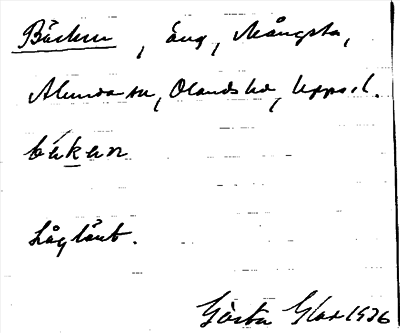 Bäcken, äng, Mångsta,
Alunda sn, Olands hd, Upps. l.
bękæn
Låglänt.
Gösta Glas 1936